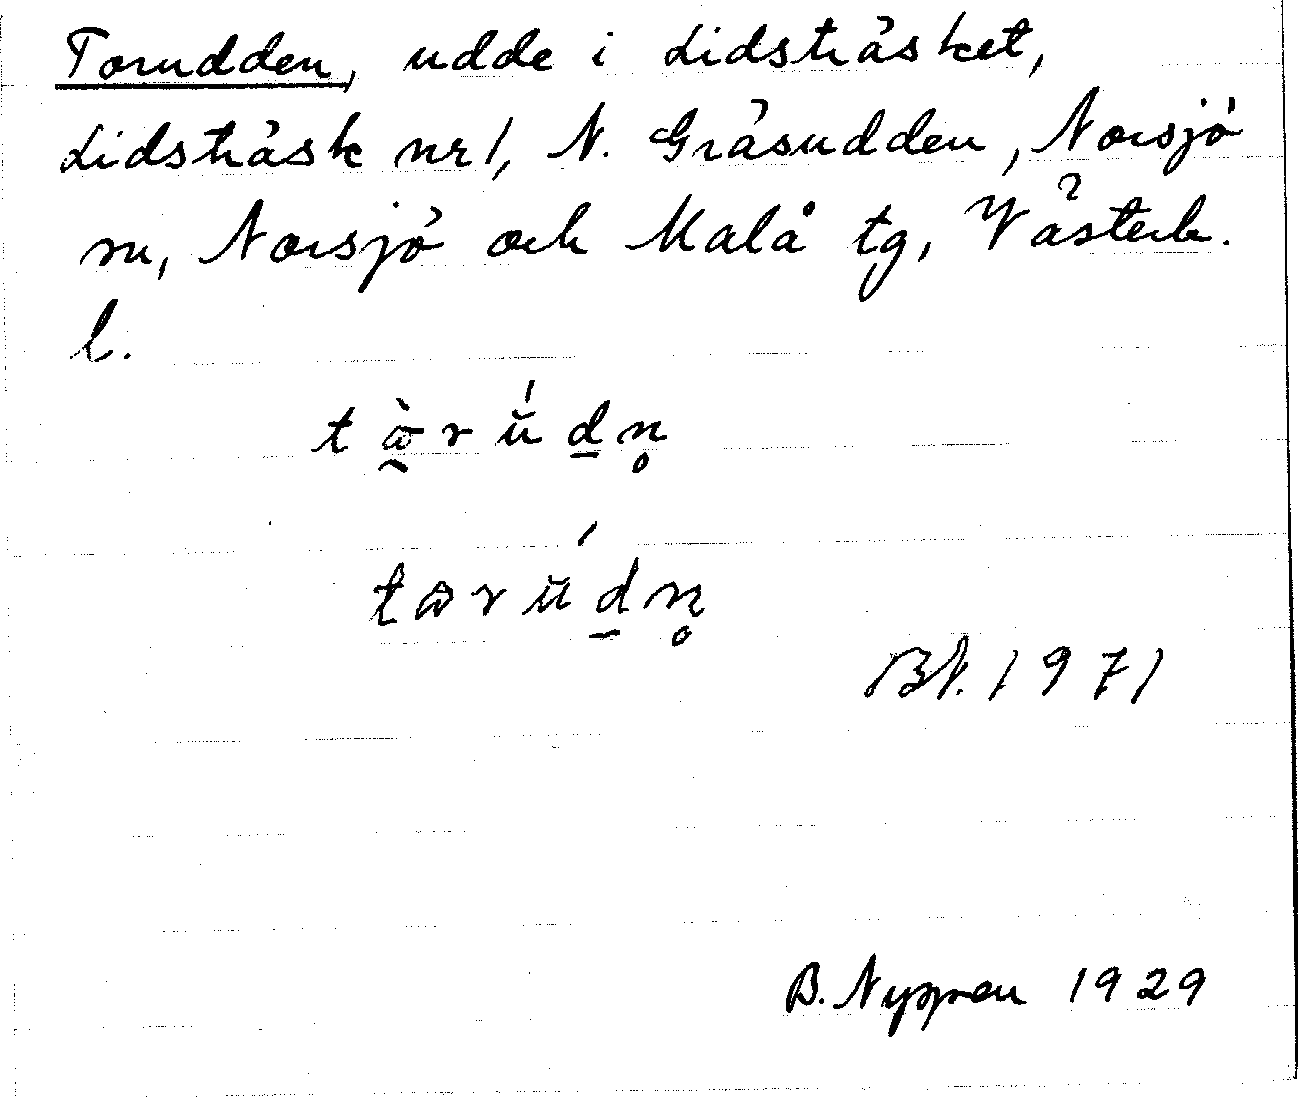 Torudden, udde i Lidsträsket,
Lidsträsk nr 1, N. Gräsudden, Norsjö
sn, Norsjö och Malå tg, Västerb.
l.
Bl. 1971
B. Nyman 1929